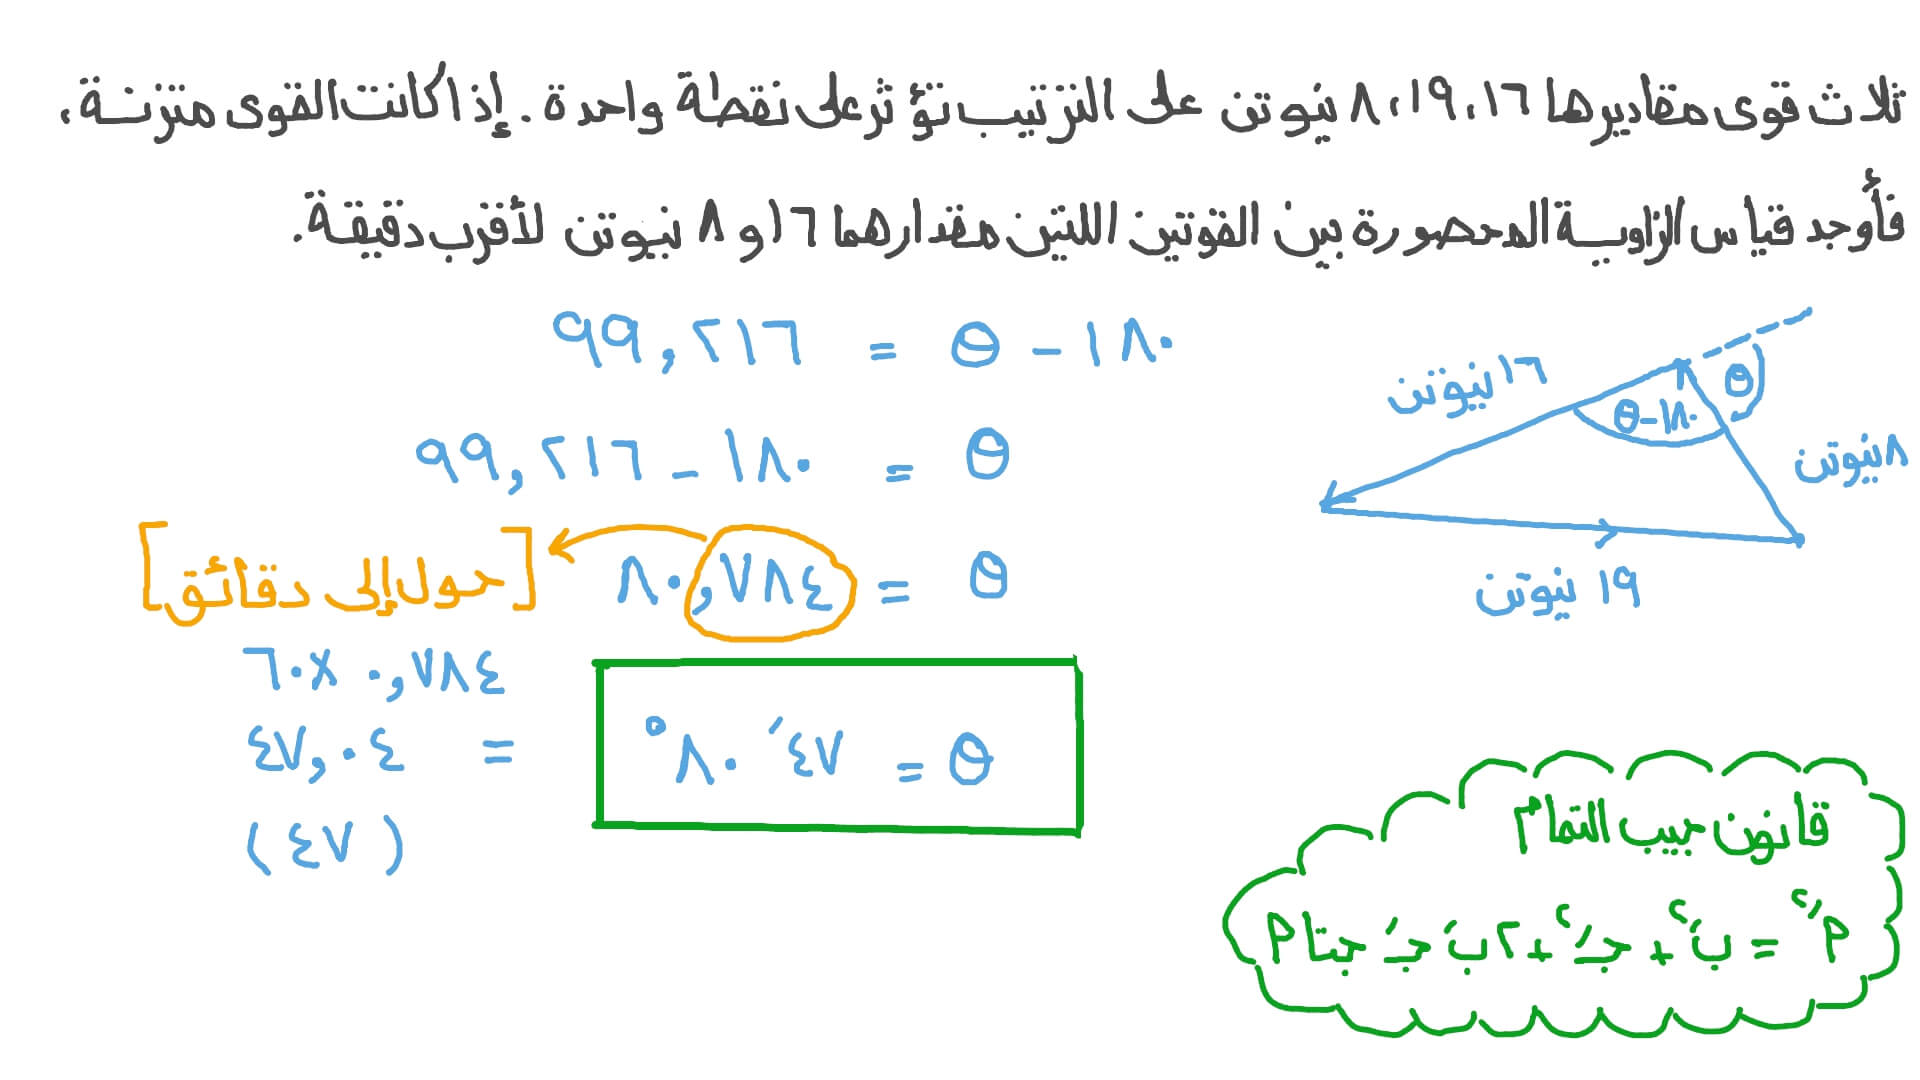 ثلاث قوى مقاديرها ١٦، ١٩، ٨ نيوتن على الترتيب تؤثر على نقطة واحدة. إذا كانت القوى متزنة،
فأوجد قياس الزاوية المحصورة بين القوتين اللتين مقدارهما ١٦ و ٨ نيوتن لأقرب دقيقة.
١٨٠ − θ = ٩٩,٢١٦
θ = ١٨٠ − ٩٩,٢١٦
θ = ٨٠,٧٨٤ [حول إلى دقائق]
٠,٧٨٤ × ٦٠
= ٤٧,٠٤
(٤٧)
θ = ٤٧′ ٨٠°
١٦ نيوتن
θ
١٨٠ − θ
٨ نيوتن
١٩ نيوتن
قانون جيب التمام
أ′² = ب′² + جـ′² + ٢ ب′ جـ′ جتا أ